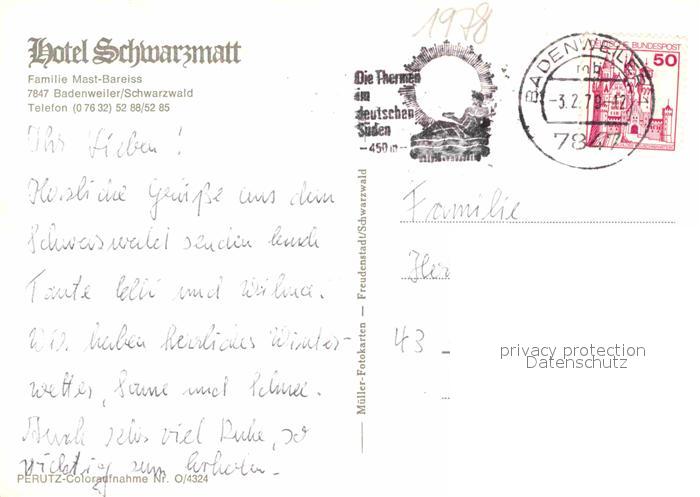 1978
Hotel Schwarzmatt
Familie Mast-Bareiss
7847 Badenweiler/Schwarzwald
Telefon (0 76 32) 52 88/52 85
Die Thermen
im
deutschen
Süden
-450m-
BADENWEILER
-3.2.79-12
7847
DEUTSCHE BUNDESPOST
50
Ihr Lieben!
Herzliche Grüße aus dem
Schwarzwald senden Euch
Tante Elli und
Wir haben herrliches Winter-
wetter, Sonne und Schnee.
Auch sehr viel Ruhe, so
richtig zum Erholen.
PERUTZ-Coloraufnahme Nr. O/4324
Müller-Fotokarten — Freudenstadt/Schwarzwald
Familie
Her
43
privacy protection
Datenschutz